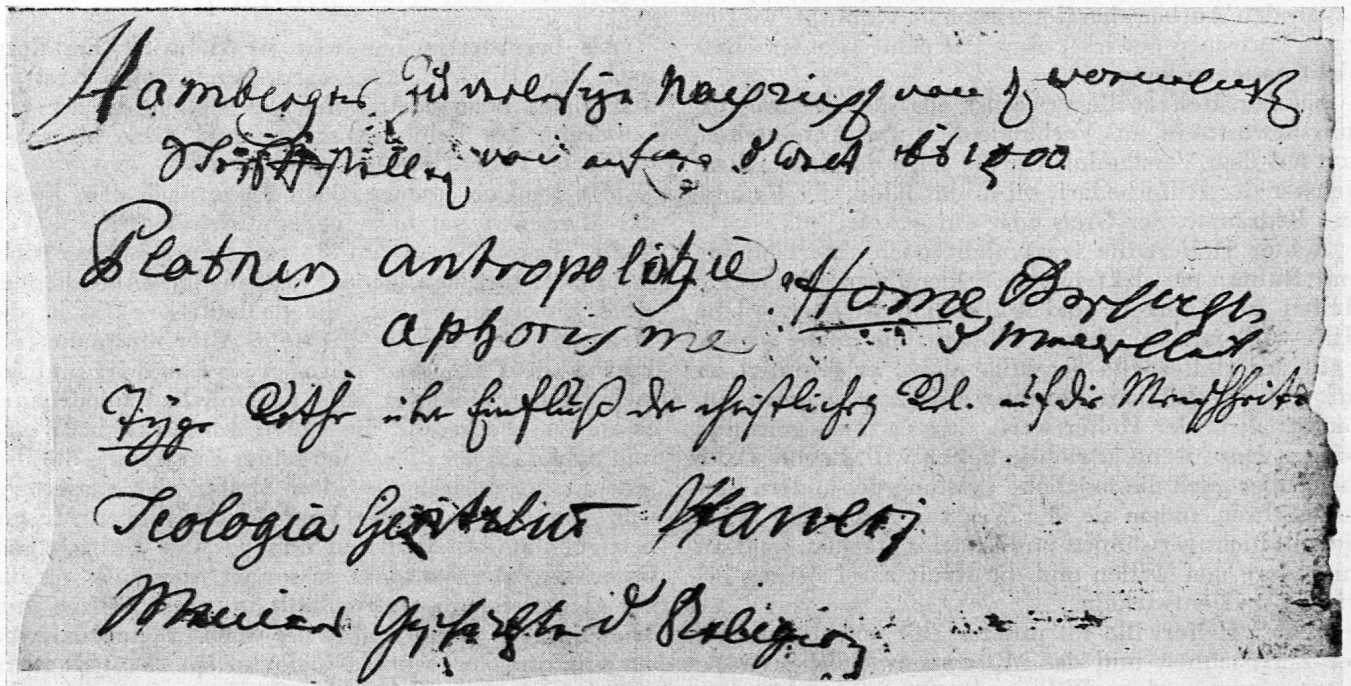 Hambergers Zuverlesige Nachricht von d vornemst
Schriftsteller von anfang d Welt bis 1500
Platners antropologie
aphorisme
Home Versuch
d Menschheit
Tyge Rothe über Einfluß der christlichen Rel. auf die Menschheit
Teologia
Geschichte d Religion